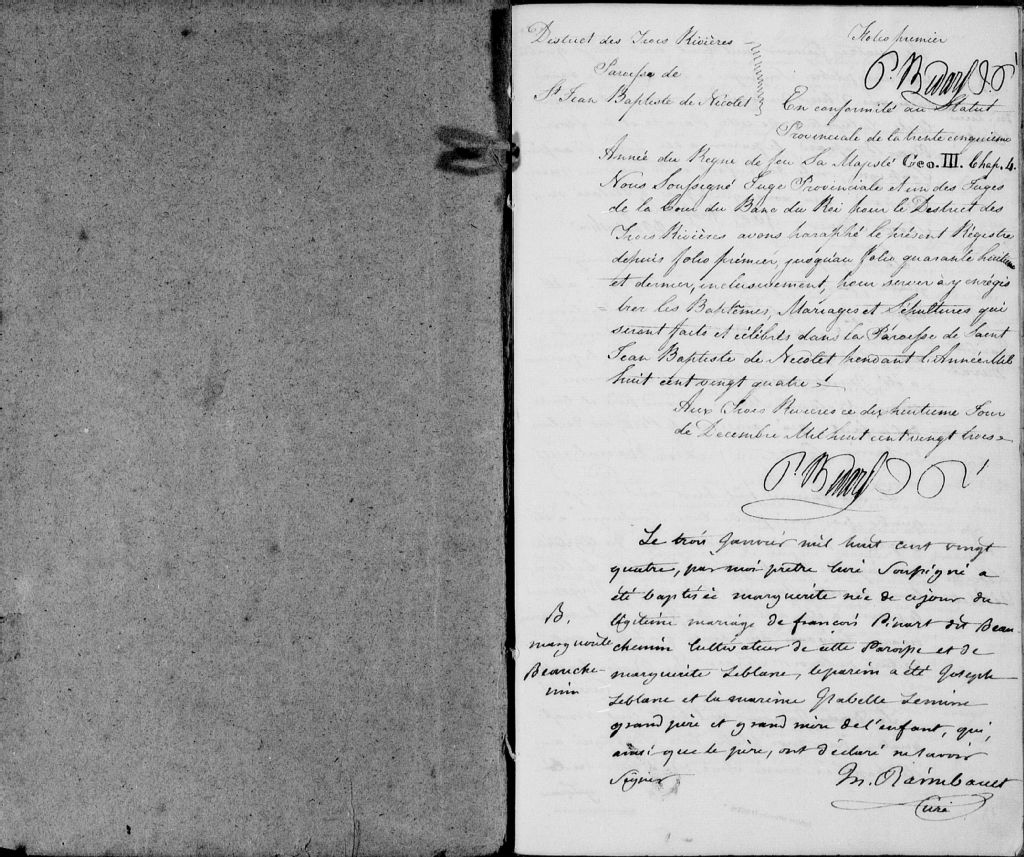 District des Trois Rivières
Folio premier
P. Bedard J. P.
Paroisse de
St Jean Baptiste de Nicolet
En conformité au Statut
Provinciale de la trente cinquieme
Année du Regne de feu Sa Majesté Geo. III. Chap. 4.
Nous Soussigné Juge Provinciale et un des Juges
de la Cour du Banc du Roi pour le District des
Trois Rivières avons paraphé le présent Régistre
depuis folio premier, jusqu'au folio quarante huitieme
et dernier, inclusivement, pour servir à y enrégis
= trer les Baptêmes, Mariages et Sépultures qui
seront faits et célébrés dans la Paroisse de Saint
Jean Baptiste de Nicolet pendant l'Année Mil
huit cent vingt quatre.=
Aux Trois Rivieres ce dix huitieme Jour
de Decembre Mil huit cent vingt trois=
P. Bedard J. P.
Le trois Janvier mil huit cent vingt
quatre, par moi prêtre Curé Soussigné a
été baptisée marguérite née de ce jour du
légitime mariage de françois Pinart dit Beau-
chemin Cultivateur de cette Paroisse et de
marguérite Leblanc, le parein a été Joseph
Leblanc et la mareine Isabelle Lemire
grand père et grand mère de l'enfant, qui,
ainsi que le père, ont déclaré ne savoir
signer
B.
marguérite
Beauche-
min
M. Raimbault
Curé